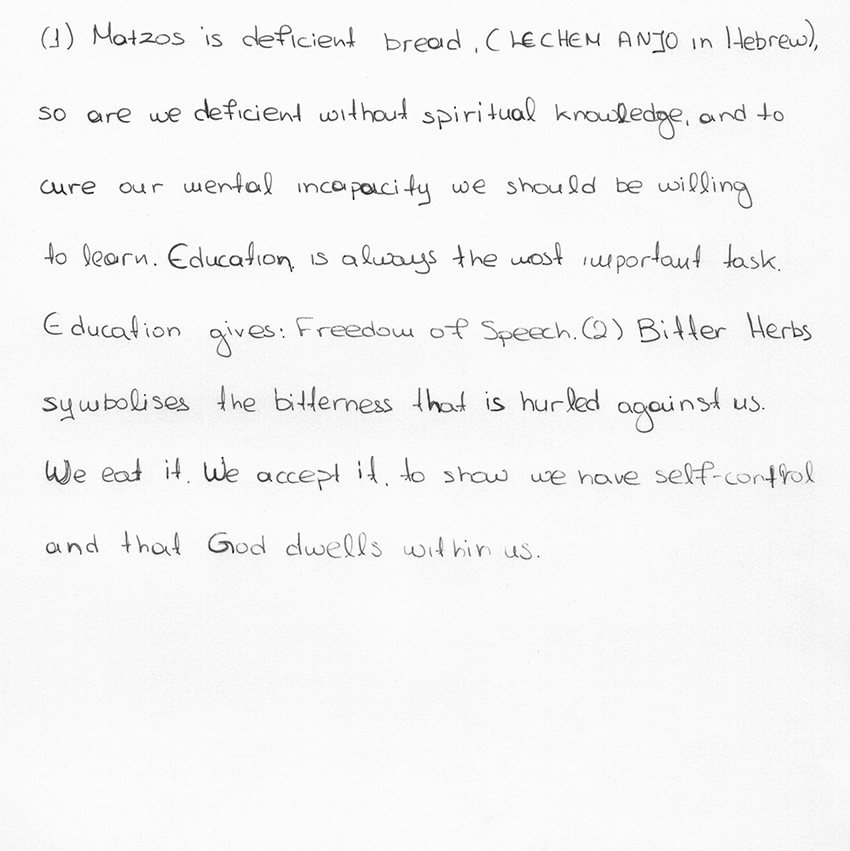 (1) Matzos is deficient bread, (LECHEM ANJO in Hebrew),
so are we deficient without spiritual knowledge, and to
cure our mental incapacity we should be willing
to learn. Education is always the most important task.
Education gives: Freedom of Speech. (2) Bitter Herbs
symbolises the bitterness that is hurled against us.
We eat it. We accept it, to show we have self-control
and that God dwells within us.